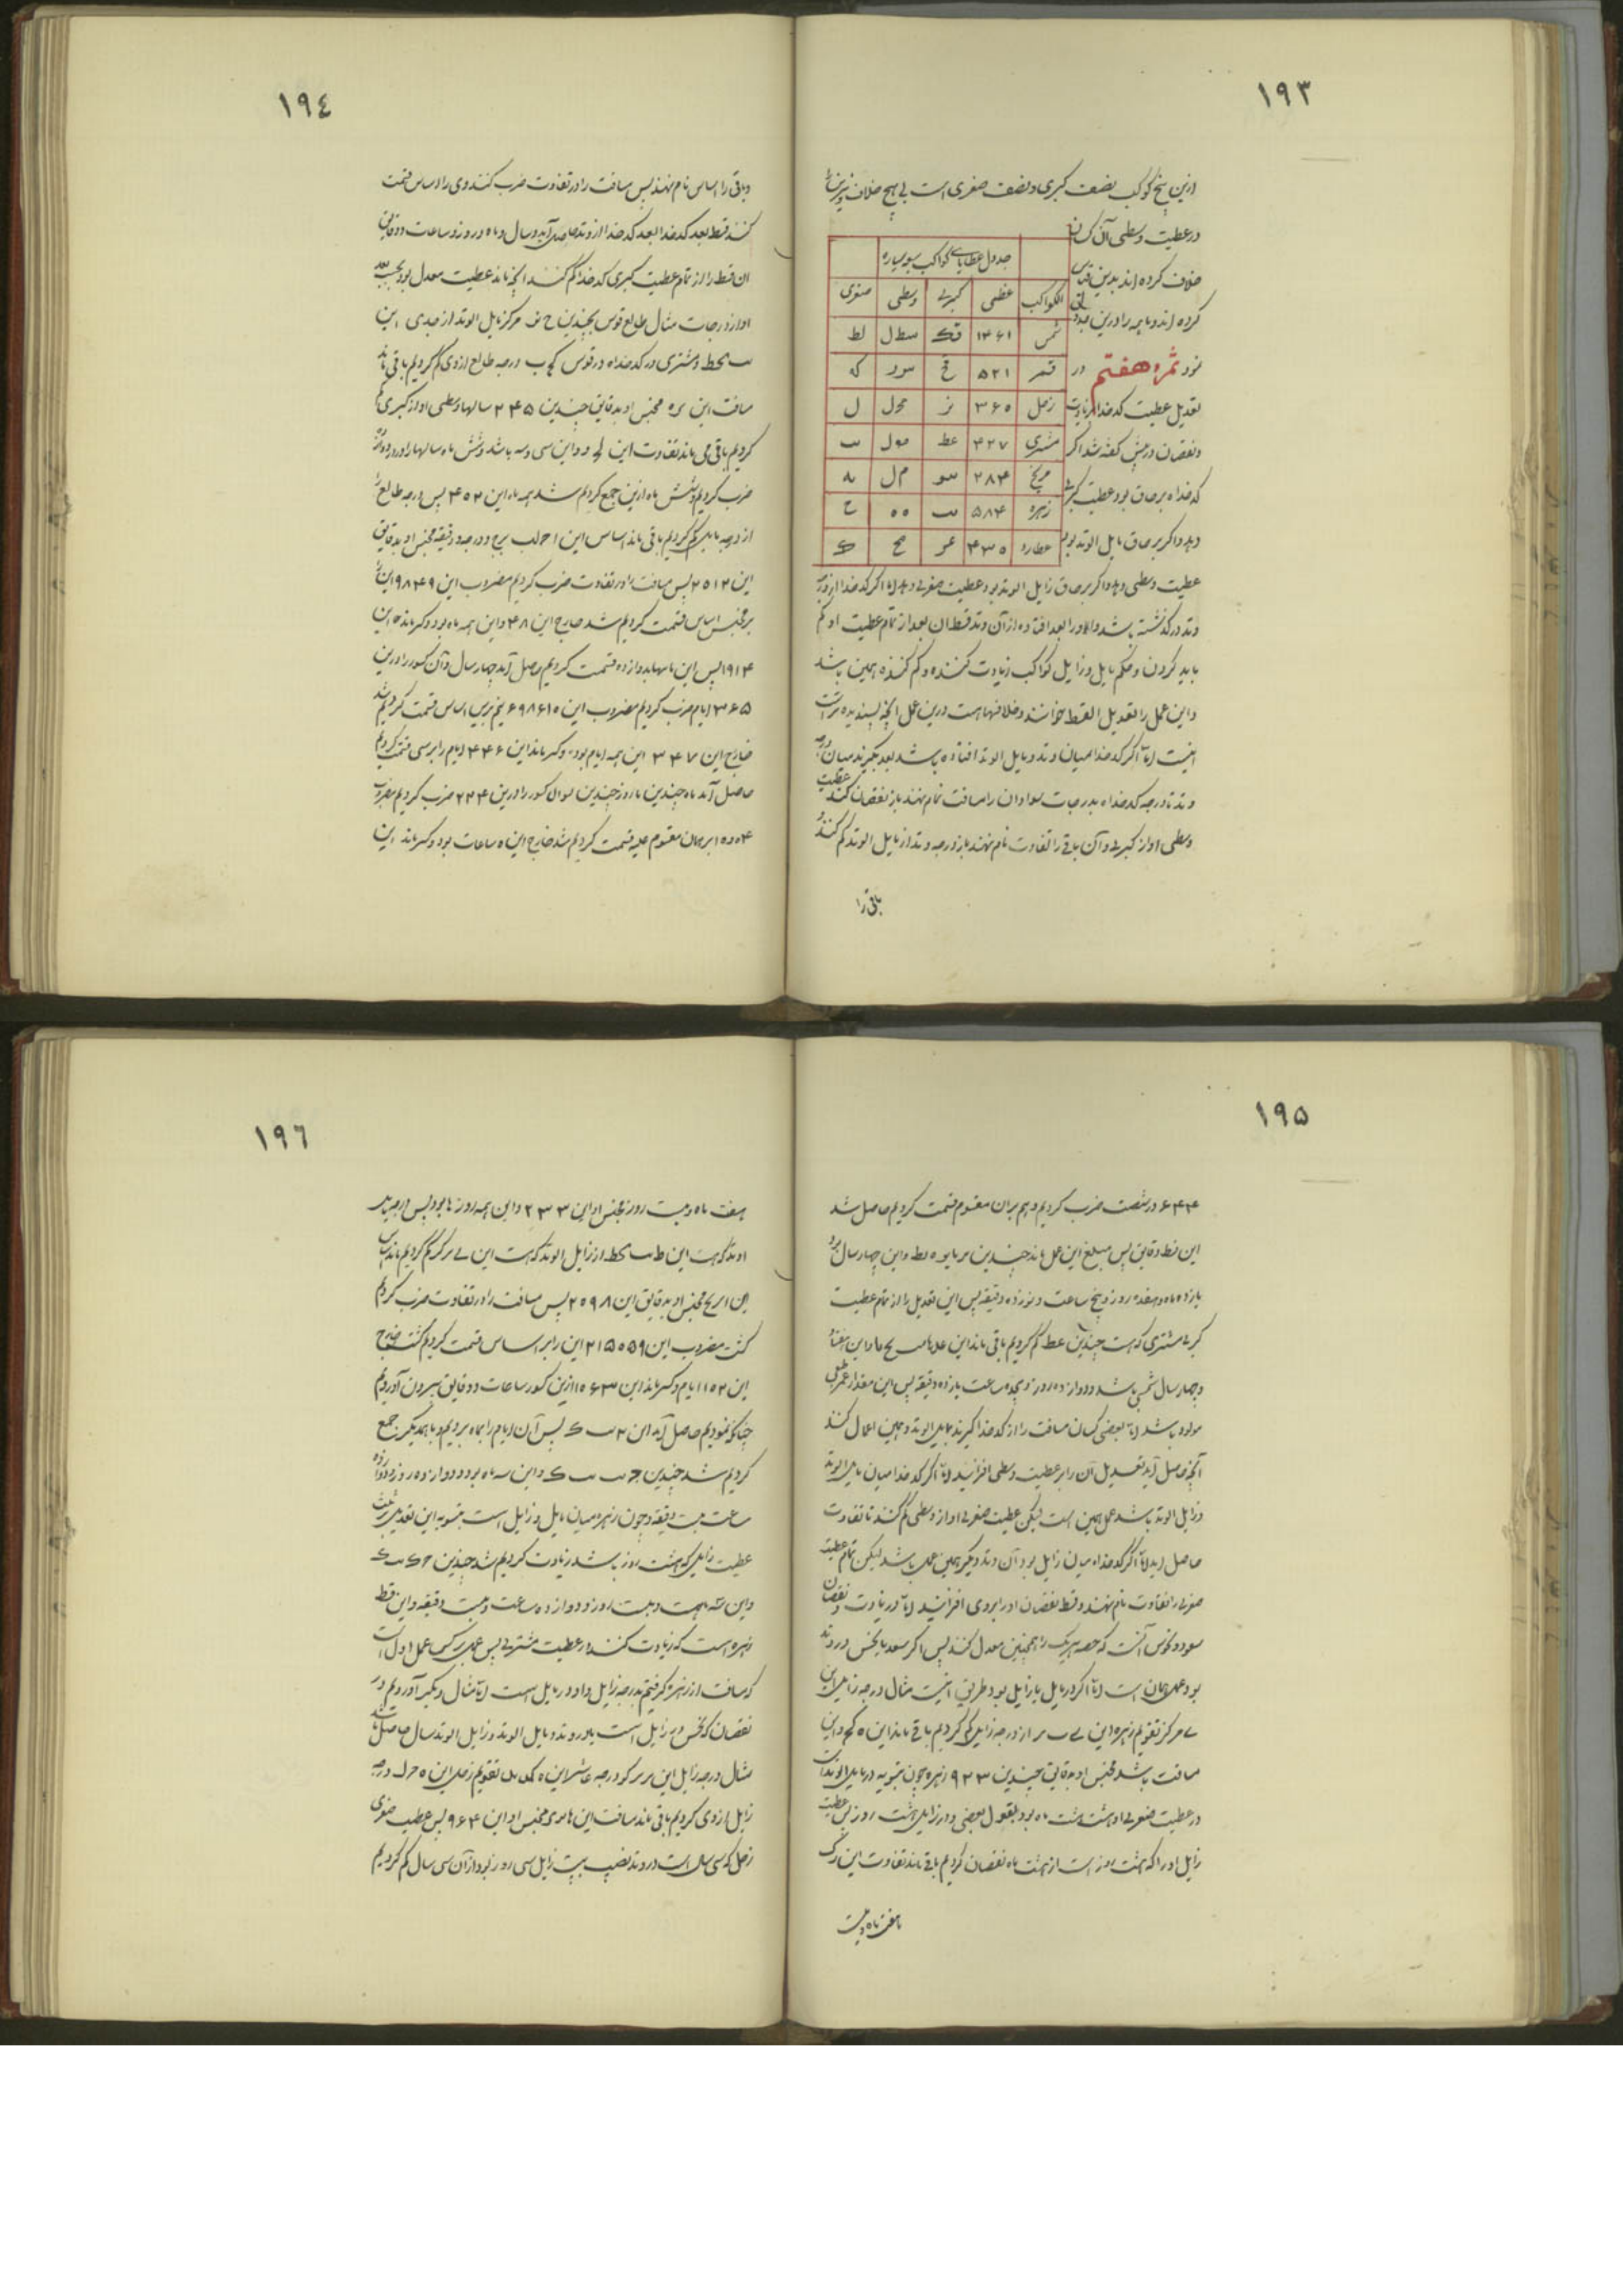 ١٩٣
ازین پنج کوکب نصف کبری و نصف صغری است بی هیچ خلاف و نیرین را
در عطیت وسطی آن کسان
خلاف کرده اند بدین قیاس
کرده اند و ما همه را درین جدول
نمود ثمره هفتم در
تعدیل عطیت کدخدا زیادت
و نقصان در پیش گفته شد اگر
کدخداه بر حاق بود عطیت کبری
دهد و اگر بر حاق مایل الوتد بود
جدول عطایای کواکب سبعه سیاره
الکواکب عظمی کبری وسطی صغری
شمس ۱۴۶۱ قک سطل لط
قمر ۵۲۱ قح سود که
زحل ۳۶۰ نز محل ل
مشتری ۴۲۷ عط مول ىب
مریخ ۲۸۴ سو م ل ىه
زهره ۵۸۴ ىب ٥٥ ح
عطارد ۴۳۵ عو مح ک
عطیت وسطی دهد و اگر بر حاق زایل الوتد بود عطیت صغری دهد اما اگر کدخدا از درجه
وتد در گذشته باشد و او را بعد افتاده از آن وتد قسط آن بعد از تمام عطیت او کم
باید کردن و حکم مایل و زایل کواکب زیادت کننده و کم کننده همین باشد
و این عمل را تعدیل القسط خوانند و خلافهاست درین عمل آنچه پسندیده تر است
اینست اما اگر کدخدا میان وتد و مایل الوتد افتاده باشد بعد بگیرند میان درجه
وتد تا درجه کدخداه بدرجات سوا و آن را مسافت نام نهند باز نقصان کنند عطیت
وسطی او از کبری و آن باقی را تفاوت نام نهند باز درجه وتد از مایل الوتد کم کنند و
باقی را
١٩٤
و باقی را اساس نام نهند پس مسافت را در تفاوت ضرب کنند و وی را بر اساس قسمت
کنند قسط بعد کدخدا بعد کدخدا از وتد حاصل آید و سال و ماه و روز و ساعات و دقایق
آن قسط را از تمام عطیت کبری کدخدا کم کنند آنچه ماند عطیت معدل بود بحسب بعد
او از درجات مثال طالع قوس بچندین ح نو مرکز مایل الوتد از جدی این
ىب محط و مشتری در کدخداه در قوس کح ب درجه طالع از وی کم کردیم باقی ماند
مسافت این ىره مجنس او بدقایق چندین ۲۴۵ سالها وسطی او از کبری کم
کردیم باقی می ماند تفاوت این لح و و این سی و سه باشد و شش ماه سالها را در دوازده
ضرب کردیم و شش ماه ازین جمع کردیم شد همه ماه این ۴۰۲ پس درجه طالع را
از درجه مایل کم کردیم باقی ماند اساس این ا حرلب برج و درجه و دقیقه مجنس او بدقایق
این ۲۵۱۲ پس مسافت را در تفاوت ضرب کردیم مضروب این ۹۸۴۹۰ این را
بر مجنس اساس قسمت کردیم شد خارج این ۴۸ و این همه ماه بود و کسر ماند این
۱۹۱۴ پس این ماهها بدوازده قسمت کردیم حاصل آید چهار سال و آن کسور را درین
۳۶۵ ایام ضرب کردیم مضروب این ۶۹۸۶۱۰ نیز برین اساس قسمت کردیم شد
خارج این ۳۴۷ این همه ایام بود و کسر ماند این ۴۴۶ ایام را بر سی قسمت کردیم
حاصل آمد ماه چندین یا روز چندین لوای کسور را درین ۲۴ ضرب کردیم مضروب
بر همان مقسوم علیه قسمت کردیم شد خارج این ه ساعات بود و کسر ماند این
١٩٥
۶۴۴ در شصت ضرب کردیم و هم بر آن مقسوم قسمت کردیم حاصل شد
این نط دقایق پس مبلغ این عمل ماند چندین و این چهار سال بود
یازده ماه و هفده روز و پنج ساعت و نوزده دقیقه پس این تعدیل را از تمام عطیت
کبری مشتری که است چندین عط کم کردیم باقی ماند این و این هفتاد
و چهار سال شمسی باشد و دوازده روز و هجده ساعت یازده دقیقه پس این مقدار عمر طبیعی
مولود باشد اما بعضی کسان مسافت را از کدخدا گیرند تا مایل الوتد و همین اعمال کنند
آنچه حاصل آید تعدیل آن را بر عطیت وسطی افزایند اما اگر کدخدا میان مایل الوتد
و زایل الوتد باشد عمل همین است لیکن عطیت صغری او از وسطی کم کنند تا تفاوت
حاصل آید اما اگر کدخداه میان زایل بود و آن وتد دیگر همین عمل باشد لیکن تمام عطیت
صغری را تفاوت نام نهند و قسط نقصان او را بر وی افزایند اما در زیادت و نقصان
سعود و نحوس آنست که حصه هر یک را همچنین معدل کنند پس اگر سعد یا نحس در وتد
بود عمل همان است اما اگر در مایل یا زایل بود طریق اینست مثال درجه زایل این
ے مرکز تقویم زهره این از درجه زایل کم کردیم باقی ماند این ه کح و این
مسافت باشد مجنس او بدقایق چندین ۹۲۳ زهره چون بتسویه در مایل الوتد است
در عطیت صغری او هشت هشت ماه بود بقول بعضی و در زایل هشت روز پس عطیت
زایل او را که هشت روز است از هشت ماه نقصان کردیم باقی ماند تفاوت این رک
ماهفت ماه و بیست
١٩٦
هفت ماه و بیست روز مجنس او این ۲۳۳ و این همه روزها بود پس درجه مایل
او بد که هست این ط ىب محط از زایل الوتد که هست این کم کردیم ماند اساس
این ا ىرىح مجنس او بدقایق این ۲۵۹۸ پس مسافت را در تفاوت ضرب کردیم
گشت مضروب این ۲۱۵۰۵۹ این را بر اساس قسمت کردیم گشت خارج
این ۱۱۵۲ ایام و کسر ماند این ۱۵۶۳ ازین کسور ساعات و دقایق بیرون آوردیم
چنانکه نمودیم حاصل آید این ۲ ىب ک پس آن ایام را بماه بردیم و با همدیگر جمع
کردیم شد چندین ج ىب ىب ک و این سه ماه بود و دوازده روز و دوازده
ساعت بیست دقیقه و چون زهره میان مایل و زایل است بتسویه این تعدیل بر ثلث
عطیت زایل که هشت روز باشد زیادت کردیم شد چندین ج ک ىب ک
و این سه ماهست و بیست روز و دوازده ساعت و بیست دقیقه و این قسط
زهره است که زیادت کننده در عطیت مشتری پس عمل برعکس عمل اول است
که مسافت از زهره گرفتیم بدرجه زایل و او در مایل است اما مثال دیگر آوردیم در
نقصان که نحس در زایل است یا در وتد و مایل الوتد و زایل الوتد سال حاصل باشد
مثال درجه زایل این درجه عاشر این ه کک ىد تقویم زحل این درجه
زایل از وی کردیم باقی ماند مسافت این مجنس او این ۹۶۴ پس عطیت صغری
زحل که سی سال است در وتد نصیب بیت زایل سی روز بود از آن سی سال کم کردیم